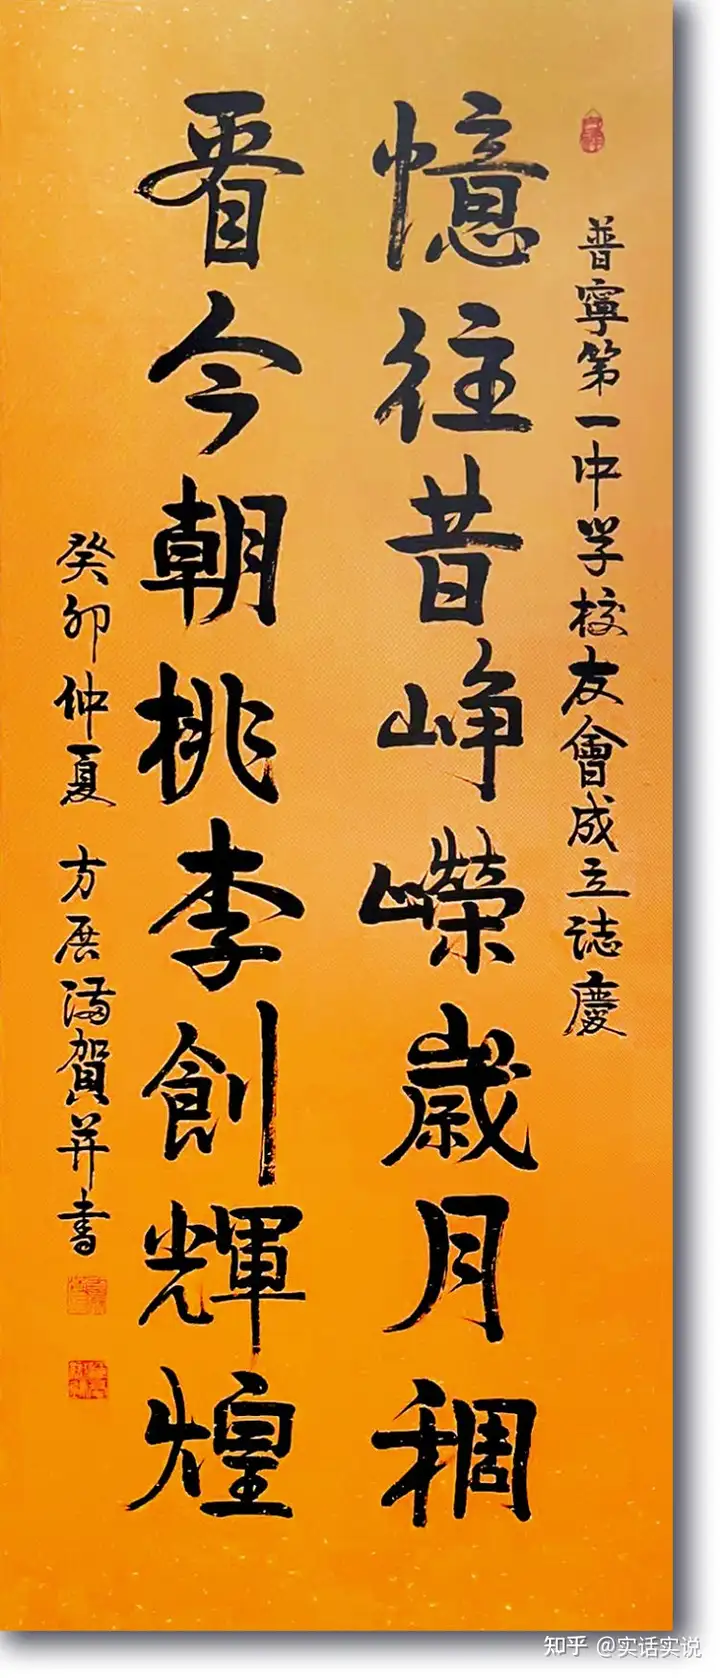 普寧第一中学校友會成立誌慶
憶往昔峥嶸歲月稠
看今朝桃李創輝煌
癸卯仲夏 方展滿賀并書
知乎 @实话实说